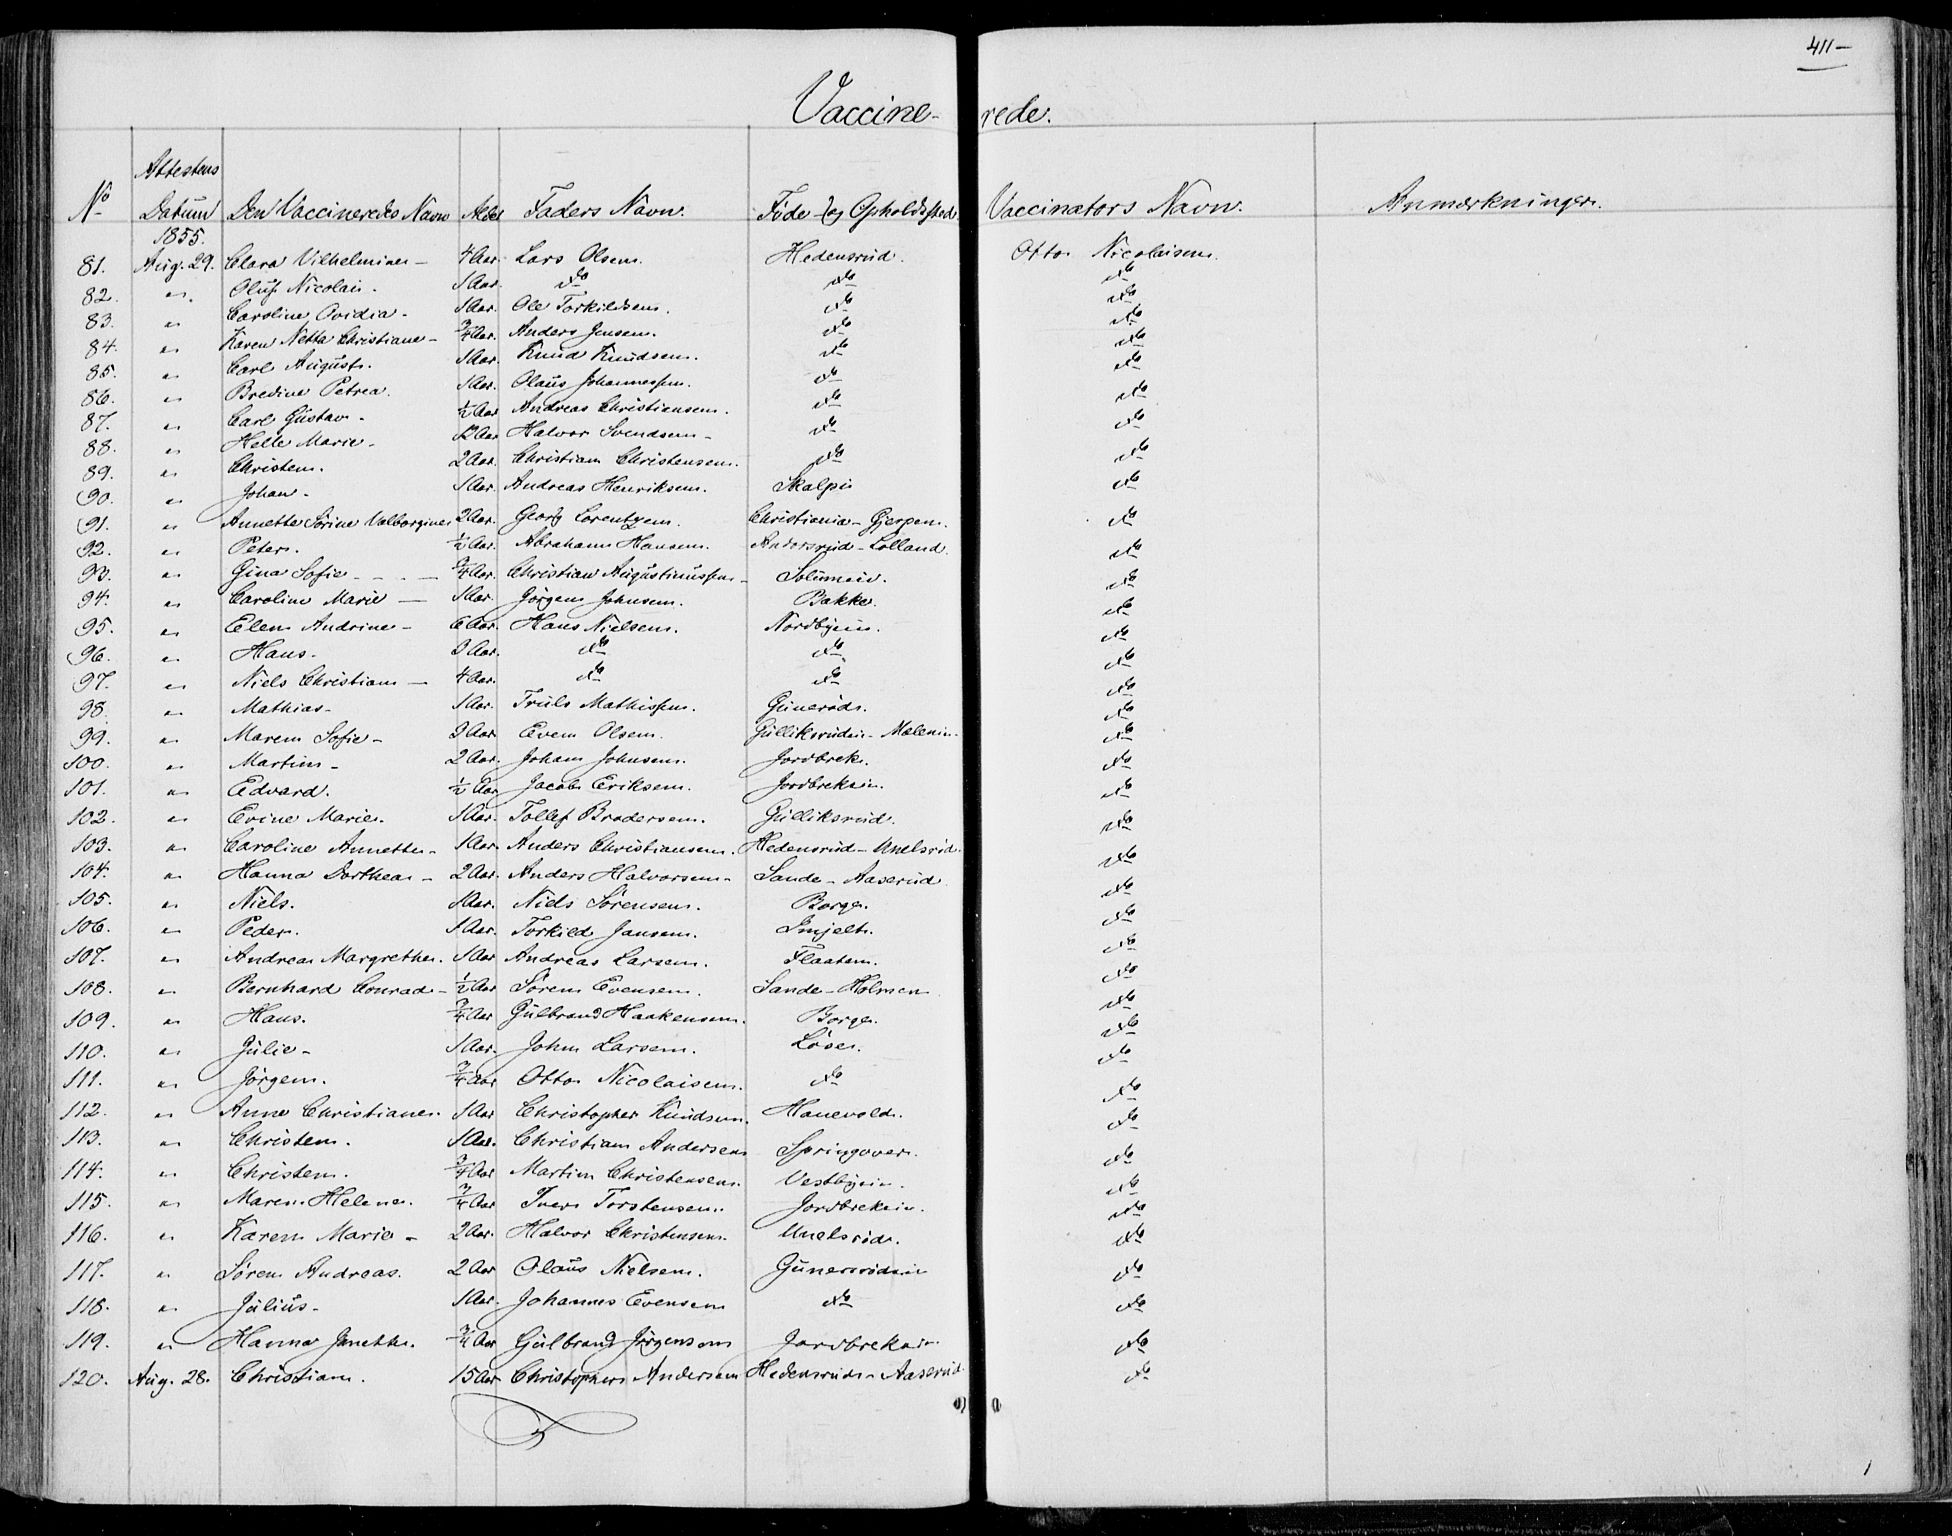 411-
Vaccinerede.
No Attestens Datum Den Vaccineredes Navn Alder Faders Navn. Føde- og Opholdssted Vaccinators Navn. Anmærkninger.
1855.
81. Aug. 29. Clara Vilhelmine - 4 Aar. Lars Olsen. Hedensrud. Otto Nicolaisen.
82. " Oluf Nicolai. 1 Aar. do do do
83. " Caroline Ovidia. 1 Aar. Ole Torkildsen. do do
84. " Karen Netta Christiane - 3/4 Aar. Anders Jensen. do do
85. " Carl August. 1 Aar. Knud Knudsen. do do
86. " Bredine Petrea. 1 Aar. Olaus Johannessen. do do
87. " Carl Gustav - 1/2 Aar Andreas Christiansen. do do
88. " Helle Marie - 12 Aar Halvor Svendsen - do do
89. " Christen. 2 Aar. Christian Christensen. do do
90. " Johan - 1 Aar. Andreas Henriksen. do
91. " Annette Sørine Valborgine 2 Aar. Georg Lorentzen. Christiania - Gjerpen. do
92. " Peter. 1/2 Aar. Abraham Hansen. Andorsrud - Lolland. do
93. " Gina Sofie - 3/4 Aar. Christian Augustinussen - do
94. " Caroline Marie - 1 Aar. Jørgen Johnsen. Bakke. do
95. " Elen Andrine - 6 Aar. Hans Nielsen. Nordbyein. do
96. " Hans. 3 Aar. do do do
97. " Niels Christian - 4 Aar. do do do
98. " Mathias - 1 Aar. Truls Mathissen. Gunerød. do
99. " Maren Sofie - 3 Aar. Even Olsen. Gulliksrudein - Mælenein. do
100. " Martin - 2 Aar. Johan Johnsen. Jordbrek. do
101. " Edvard. 1/2 Aar Jacob Eriksen. Jordbrekein. do
102. " Evine Marie. 1 Aar. Tollef Brodersen. Gulliksrud. do
103. " Caroline Annette - 1 Aar. Anders Christiansen. Hedensrud - Unelsrød. do
104. " Hanna Dorthea - 2 Aar. Anders Halvorsen - Sande - Aaserud do
105. " Niels. 1 Aar. Niels Sørensen. Borge. do
106. " Peder. 1 Aar. Torkild Jansen. do
107. " Andrea Margrethe. 1 Aar Andreas Larsen. Flaaten. do
108. " Bernhard Conrad - 1/2 Aar Søren Evensen. Sande - Holmen do
109. " Hans. 3/4 Aar Gulbrand Haakensen. Borge. do
110. " Julie - 1 Aar. John Larsen. Løse. do
111. " Jørgen. 3/4 Aar Otto Nicolaisen. do do
112. " Anne Christiane. 1 Aar Christopher Knudsen. Hanevold. do
113. " Christen. 1 Aar. Christian Andersen Springover. do
114. " Christen. 3/4 Aar Martin Christensen. Vestbyein. do
115. " Maren Helene. 3/4 Aar Iver Torstensen. Jordbrekein. do
116. " Karen Marie - 2 Aar. Halvor Christensen. Unelsrød. do
117. " Søren Andreas. 2 Aar Olaus Nielsen. Gunersrødein do
118. " Julius - 1 Aar. Johannes Evensen do do
119. " Hanna Janette. 3/4 Aar Gulbrand Jørgensen Jordbrekein do
120. Aug. 28. Christian. 15 Aar Christopher Andersen Hedensrud - Aaserud do